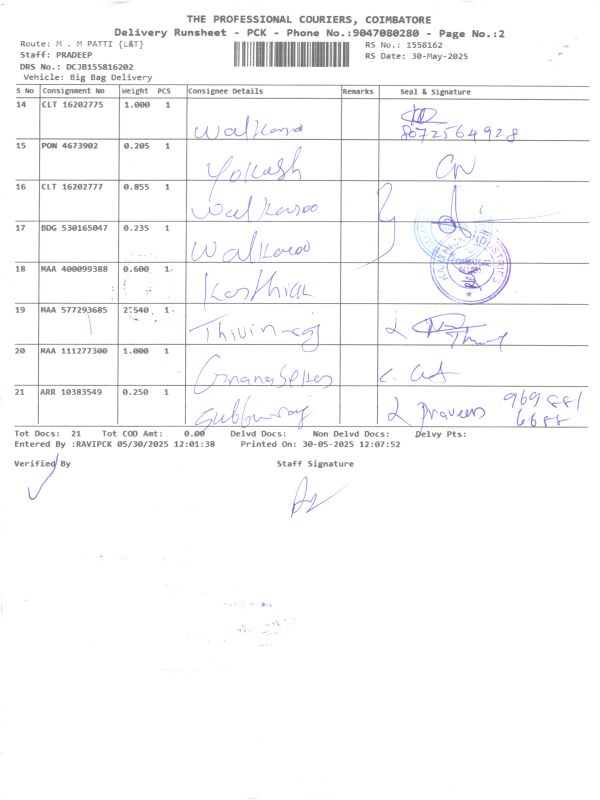 THE PROFESSIONAL COURIERS, COIMBATORE
Delivery Runsheet - PCK - Phone No.:9047080280 - Page No.:2
Route: M . M PATTI {L&T}
RS No.: 1558162
Staff: PRADEEP
RS Date: 30-May-2025
DRS No.: DCJB155816202
Vehicle: Big Bag Delivery
S No Consignment No Weight PCS Consignee Details Remarks Seal & Signature
14 CLT 16202775 1.000 1
8072564928
15 PON 4673902 0.205 1 Yokash
16 CLT 16202777 0.855 1 Walkaroo
17 BDG 530165047 0.235 1 Walkaroo
18 MAA 400099388 0.600 1 Karthick
19 MAA 577293685 2.540 1
20 MAA 111277300 1.000 1
21 ARR 10383549 0.250 1 Praveen 969 881
6688
Tot Docs: 21 Tot COD Amt: 0.00 Delvd Docs: Non Delvd Docs: Delvy Pts:
Entered By :RAVIPCK 05/30/2025 12:01:38 Printed On: 30-05-2025 12:07:52
Verified By Staff Signature